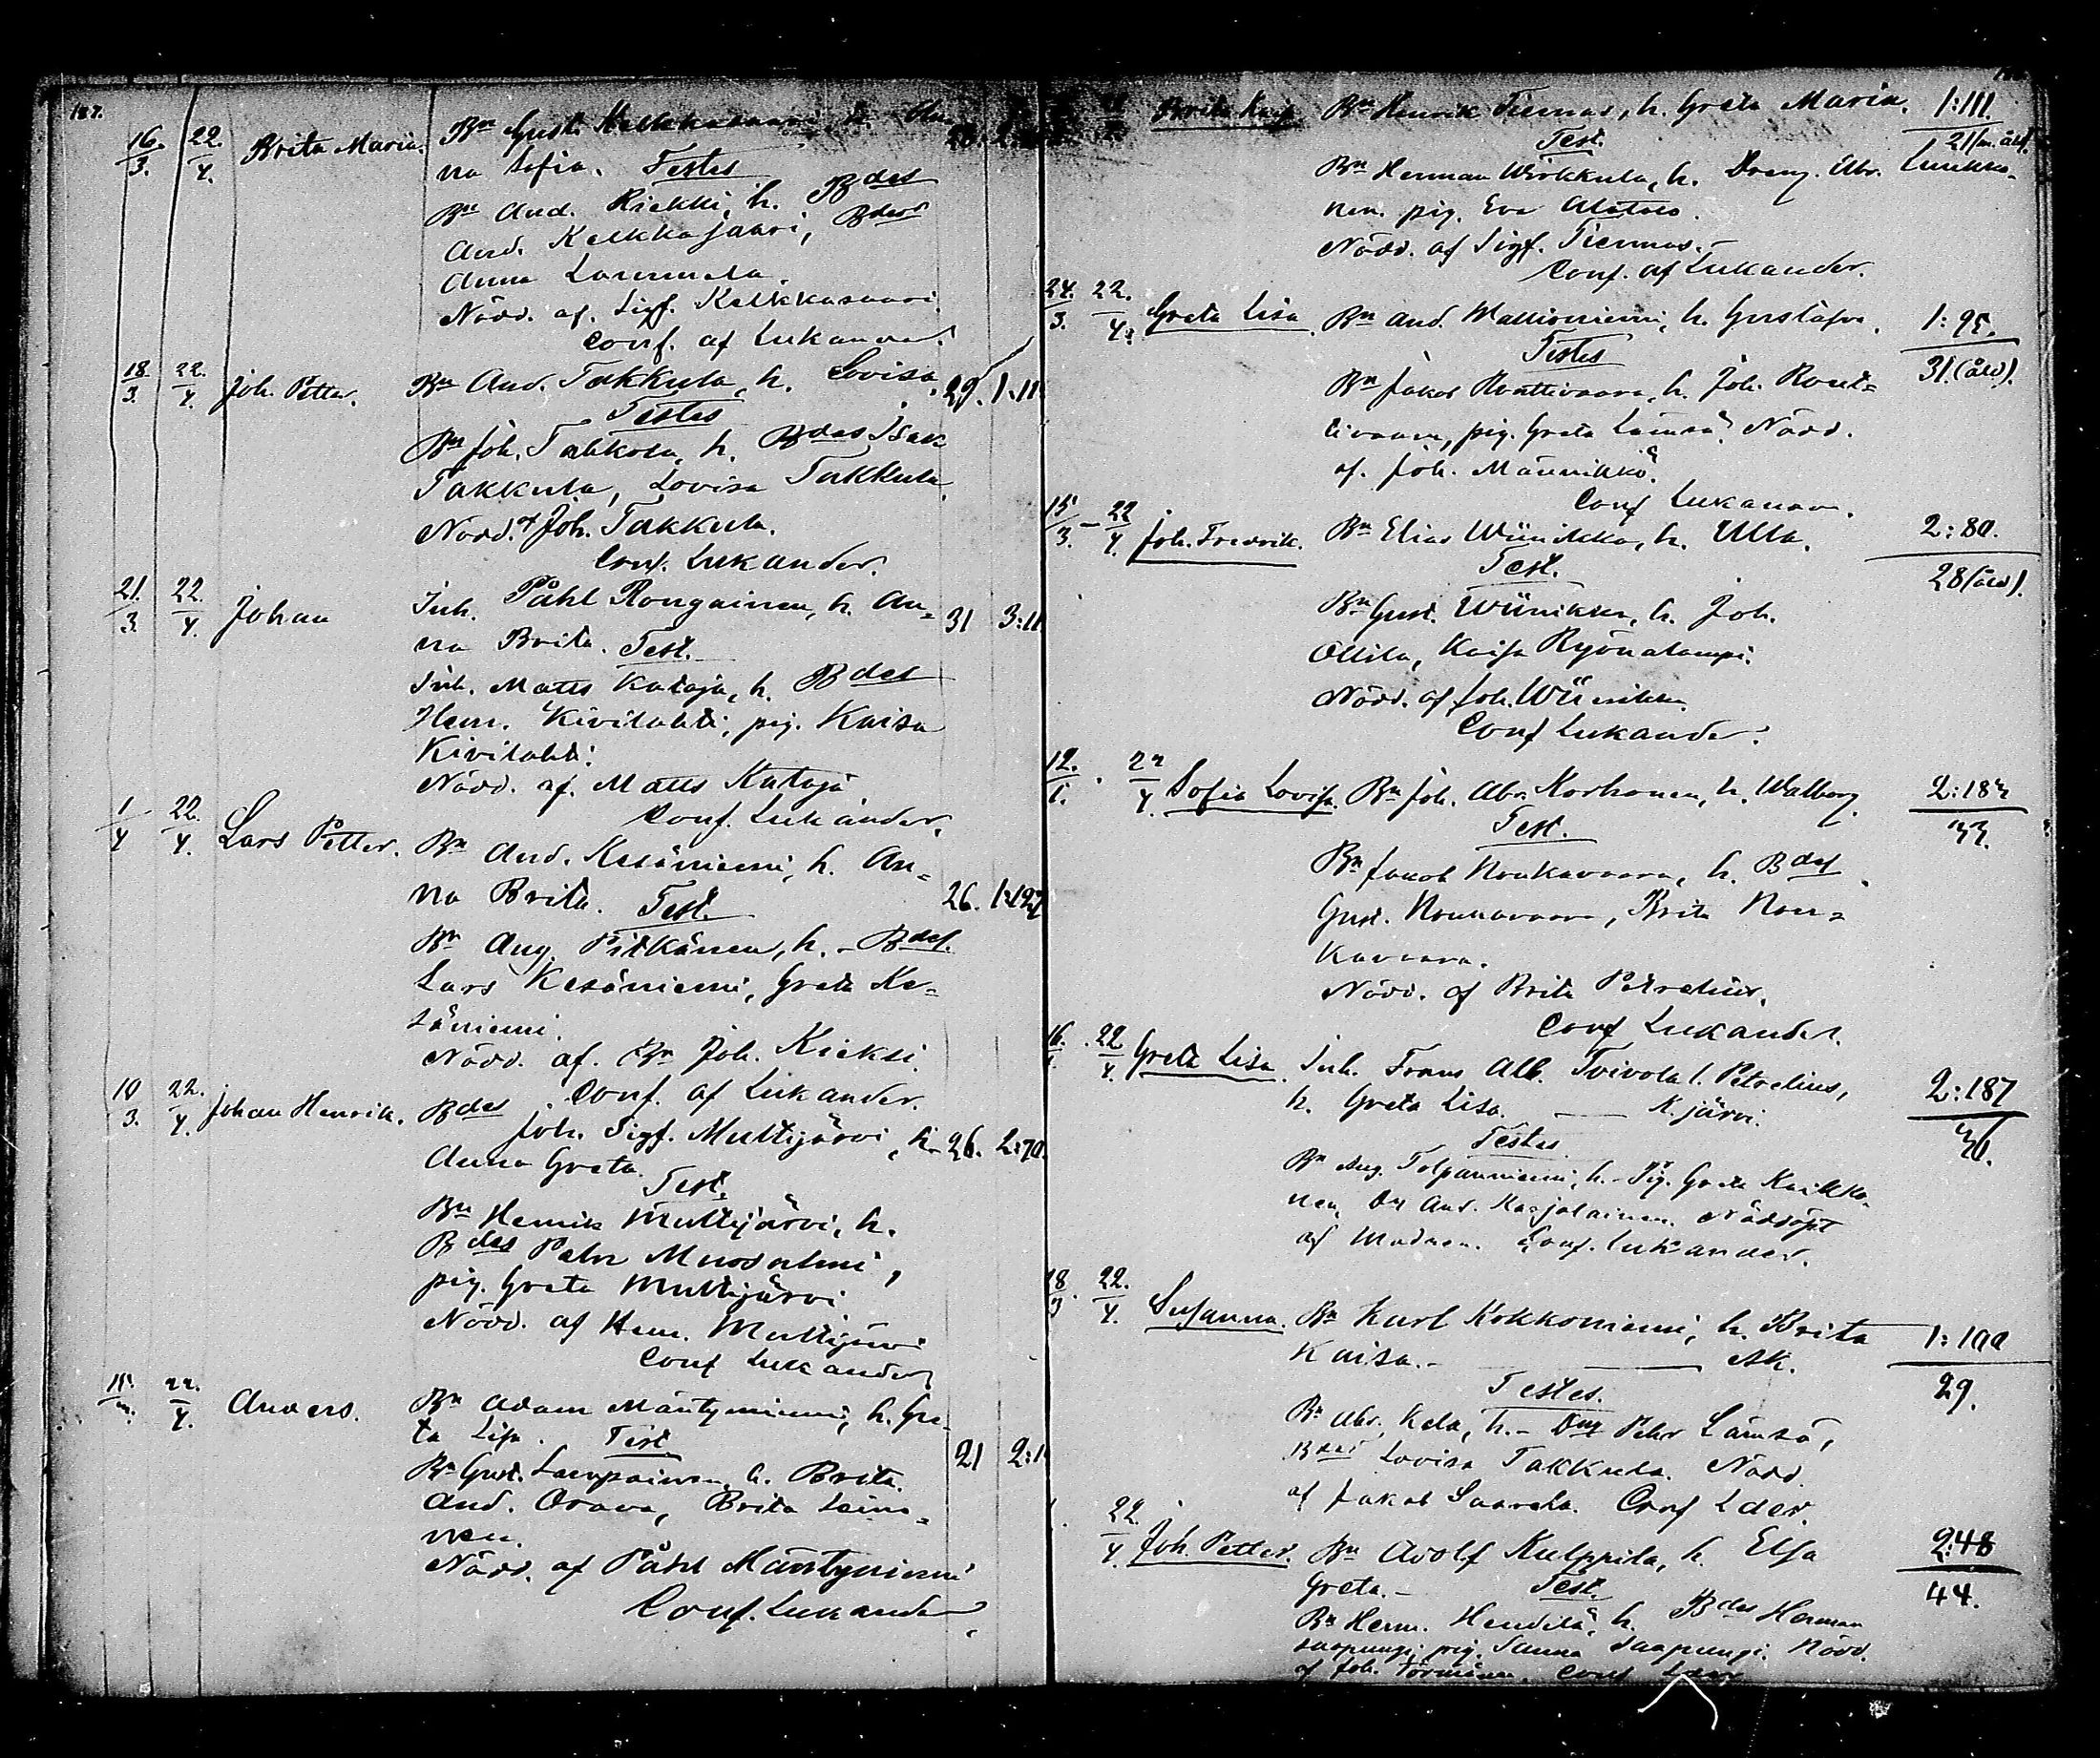 187.
16. 22. Brita Maria. Bn Gust. Kelkkasaari, h. An
3. 4. na Sofia. Testes
Bn And. Riekki, h. Bdes
And. Kelkkajaari, Bdes
Anna Lammela.
Nödd. af. Sigf. Kelkkasaari
Conf. af Lukander.
18 22. Joh. Petter. Bn And. Takkula, h. Lovisa. 29. 1:11
3. 4. Testes
Bn Joh. Tahkola, h. Bdes Isak
Takkula, Lovisa Takkula.
Nödd. af Joh. Takkula.
Conf. Lukander.
21. 22. Johan Inh. Påhl Rongainen, h. An= 31 3:11
3. 4. na Brita. Test.
Inh. Matts Kataja, h. Bdes
Henr. Kivilahti, pig. Kaisa
Kivilahti.
Nödd. af. Matts Kataja
Conf. Lukander.
1 22. Lars Petter. Bn And. Kesäniemi, h. An=
4 4. na Brita. Test. 26.
Bn Aug. Pitkänen, h. - Bdes.
Lars Kesäniemi, Greta Ke=
säniemi.
Nödd. af. Bn Joh. Kieksi.
Conf. af Lukander.
10 22. Johan Henrik. Bdes Joh. Sigf. Multijärvi, h. 26. 2:70.
3. 4. Anna Greta.
Test.
Bn Henrik Multijärvi, h.
Bdes Petr Muosalmi,
pig. Greta Multijärvi
Nödd. af Henr. Multijärvi
Conf Lukander
22. Anders. Bn Adam Mäntyniemi, h. Gre=
4. ta Lisa. Test 21 2:1
Bn Gust. Lampainen, h. Brita.
And. Orava, Brita Leino=
nen.
Nödd. af Påhl Mäntyniemi
Conf. Lukander
Brita Kaisa Bn Henrik Tiermas, h. Greta Maria. 1:111.
Test. 21
Bn Herman Wirkkula, h. Dreng. Abr. Luukko=
nen. pig. Eva Alatalo.
Nödd. af Sigf. Tiermas.-
Conf. af Lukander.
24. 22. Greta Lisa Bn And. Mallioniemi, h. Gustafva. 1:95.
3. 4. Testes 31.(åld).
Bn Jakob Routtivaara, h. Joh. Rout=
tivaara, pig. Greta Lämsä. Nödd.
af. Joh. Männikkö.
Conf Lukander.
15 22 Joh. Fredrik. Bn Elias Wiinikka, h. Ulla. 2:80.
3. 4. Test. 28(åld).
Bn Gust. Wiinikka, h. Joh.
Ollila, Kaisa Ryönalampi.
Nödd. af Joh. Wiinikka
Conf Lukander.
12. 22 Sofia Lovisa. Bn Joh. Abr. Korhonen, h. Walborg.
4. Test. 33.
Bn Jakob Noukavaara, h. Bdes
Gust. Noukavaara, Brita Nou=
kavaara.
Nödd. af Brita Petrelius.
Conf Lukander.
16. 22 Greta Lisa. Inh. Frans Alb. Toivola l. Petrelius, 2:187
4. h. Greta Lisa. K.järvi. 36.
Testes.
Bn Aug. Tolpanniemi, h. - Pig. Greta Kaikko=
nen, Dr And. Karjalainen. Nöddöpt
af Modren. Conf. Lukander.
18. 22. Susanna. Bn Karl Kokkoniemi, h. Brita 1:100
3 4. Kaisa.- 29.
Testes.
Bn Abr. Kela, h. - Dng Pehr Lämsä,
Bdes Lovisa Takkula. Nödd.
af Jakob Saarela. Conf Lder.
22. Joh. Petter. Bn Adolf Kulppila, h. Elsa 2:48
4. Greta.- Test. 44.
Bn Herm. Hendilä, h. Bdes Herman
Saapungi, pig. Sanna Saapungi. Nödd.
af Joh. Törmänen. Conf